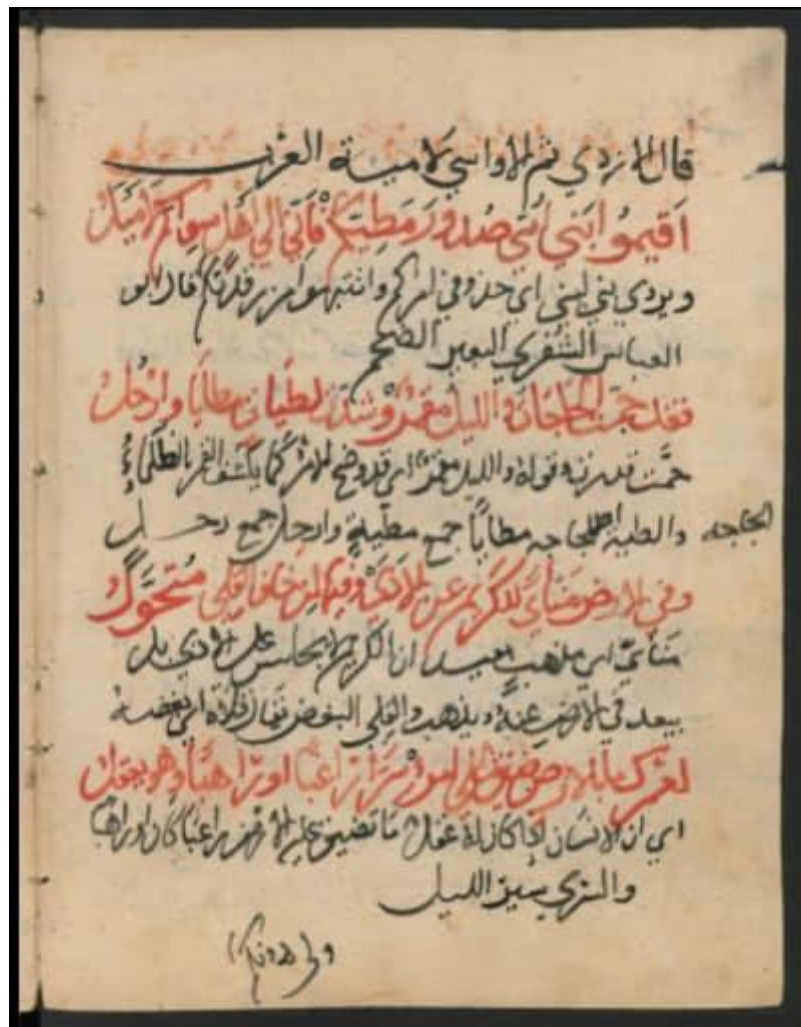 قال الازدي ثم الاواسي لامية العرب
اَقيموُا بَني اُمّي صُدورَ مَطِيّكم فَاِنّي الي اهل سِواكم لَاَمْيَلُ
ويروي بني لبني اي جدوفي امركم وانتبهوا من رقدتكم قال ابو
العباس الشنفري البعير الضخم
فقد حمّت الحاجات والليل مقمرٌ وشدّت لطيات مطايا وارحل
حمّت قدرت وقوله والليل مقمرٌ اي قد وضح الامر كما يكشف القمر الظلماءُ
والطية الحاجه مطايا جمع مطيةٍ وارحل جمع رحل
الحاجه
وفي الارض مَنايً للكريم عن الاذي وفيها لمن خاف القلي مُتحَوَّلُ
منايً اي مذهب بعيد ان الكريم لا يجلس علي الاذي بل
يبعد في الارض عنهُ ويذهب والقلي البغض يقال قلاهُ اي بغضهُ
لعمرك ما بالارض ضيق علي امرءٍ سَرَي راغبًا او راهبًا وهو يعقلُ
اي ان الانسان اذا كان له عقل ما تضيق عليه الارض راغبًا كان او راهبًا
والسري سير الليل
ولي دونكم